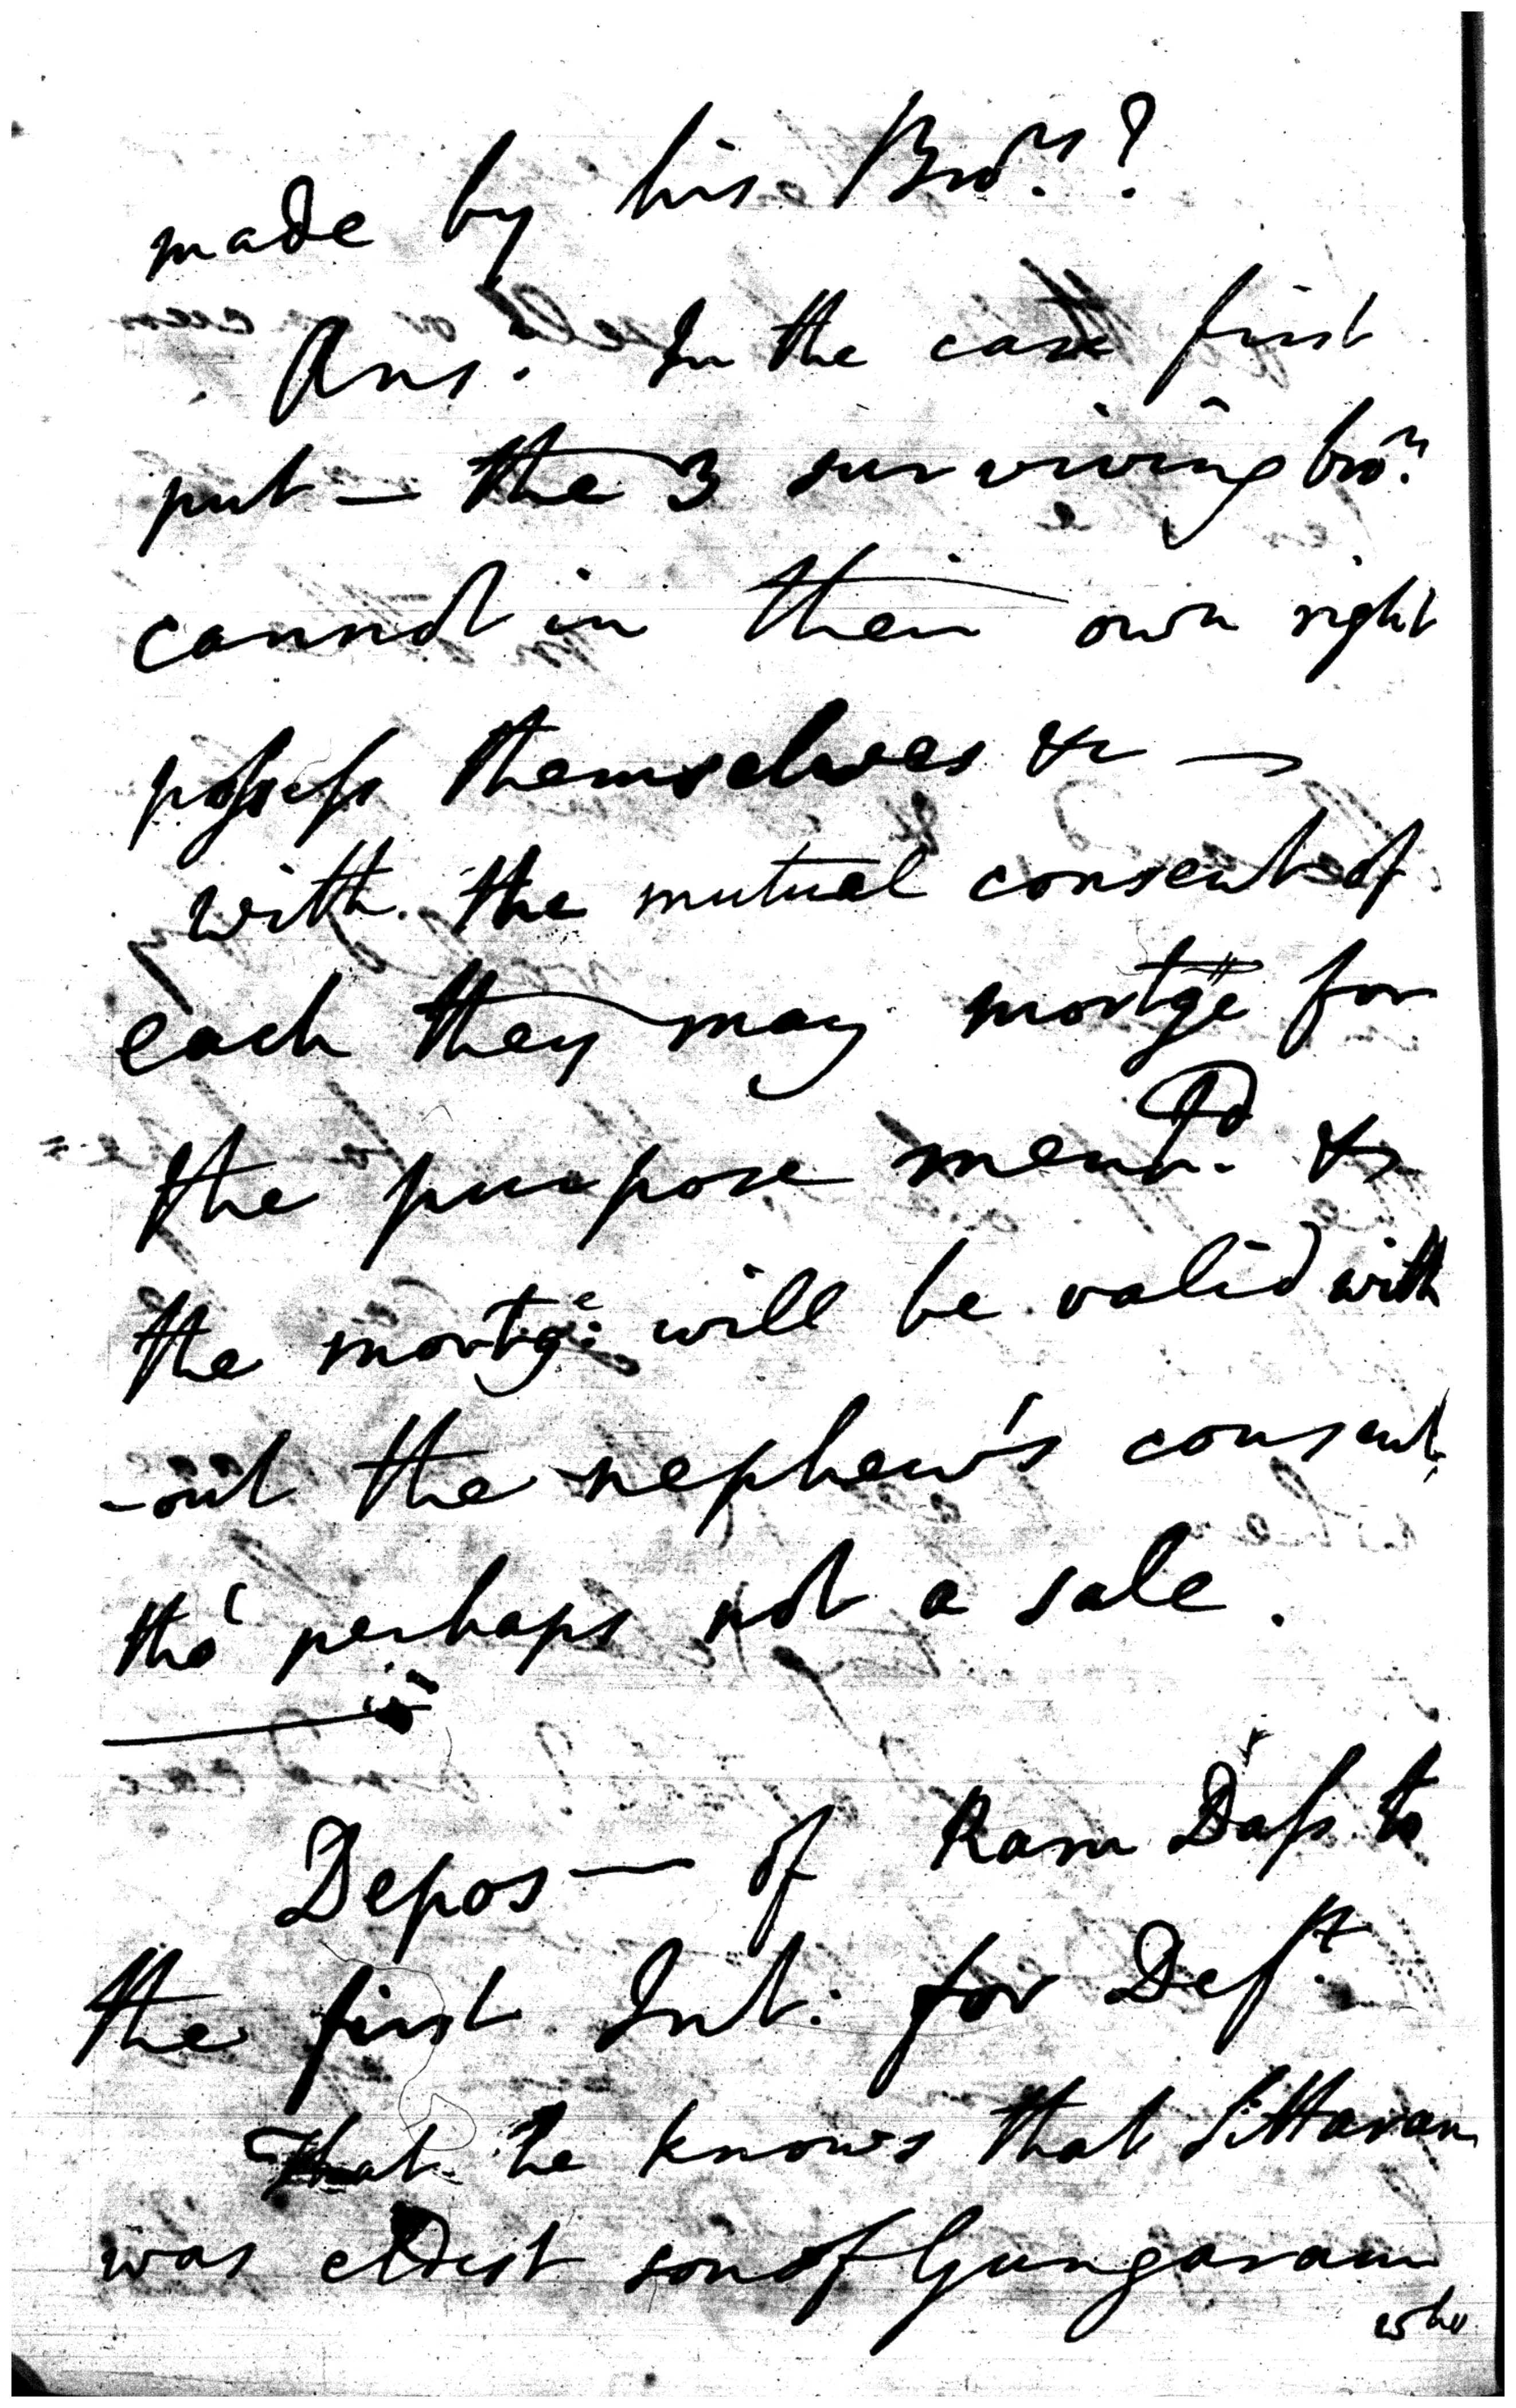 made by his Bro.rs?
Ans. In the case first
put — the 3 surviving bro.rs
cannot in their own right
possess themselves &c —
with the mutual consent of
each they may mortge for
the purpose ment.d &
the mortg.e will be valid with
-out the nephew's consent
tho' perhaps not a sale.
Depos — of Ram Dass to
the first Int. for Def.t
That he knows that Sittaram
was eldest son of Gungaram
who